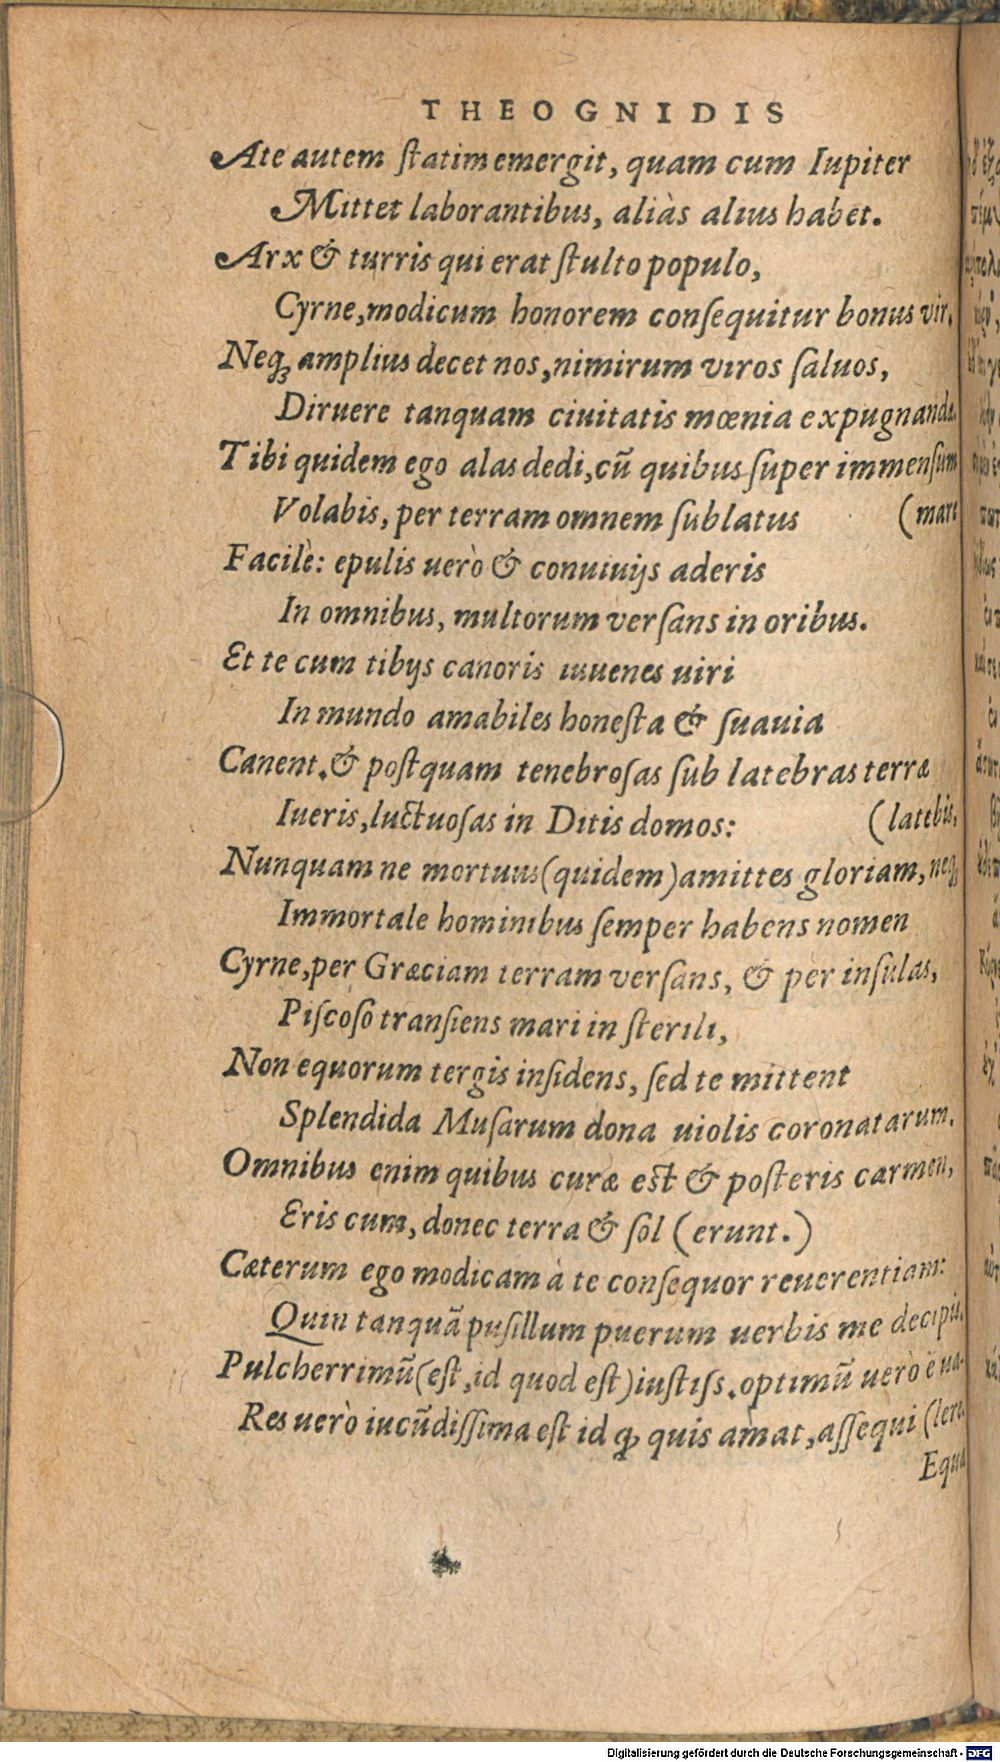 THEOGNIDIS
Ate autem ſtatim emergit, quam cum Iupiter
Mittet laborantibus, aliàs alius habet.
Arx & turris qui erat ſtulto populo,
Cyrne, modicum honorem conſequitur bonus vir.
Neqꝫ amplius decet nos, nimirum viros ſaluos,
Diruere tanquam ciuitatis mœnia expugnandæ.
Tibi quidem ego alas dedi, cũ quibus ſuper immenſum
Volabis, per terram omnem ſublatus (mare
Facilè: epulis uerò & conuiuijs aderis
In omnibus, multorum verſans in oribus.
Et te cum tibijs canoris iuuenes uiri
In mundo amabiles honeſta & ſuauia
Canent. & poſtquam tenebroſas ſub latebras terræ
Iueris, luctuoſas in Ditis domos: (latebis,
Nunquam ne mortuus (quidem) amittes gloriam, neqꝫ
Immortale hominibus ſemper habens nomen
Cyrne, per Græciam terram verſans, & per inſulas,
Piſcoſo tranſiens mari in ſterili,
Non equorum tergis inſidens, ſed te mittent
Splendida Muſarum dona uiolis coronatarum.
Omnibus enim quibus curæ eſt & poſteris carmen,
Eris cum, donec terra & ſol (erunt.)
Cæterum ego modicam à te conſequor reuerentiam:
Quin tanquã puſillum puerum uerbis me decipis.
Pulcherrimũ (eſt, id quod eſt) iuſtiſſ. optimũ uerò ẽ ua-
Res uerò iucũdiſſima eſt id ꝙ quis amat, aſſequi (lere
Equa
Digitalisierung gefördert durch die Deutsche Forschungsgemeinschaft - DFG